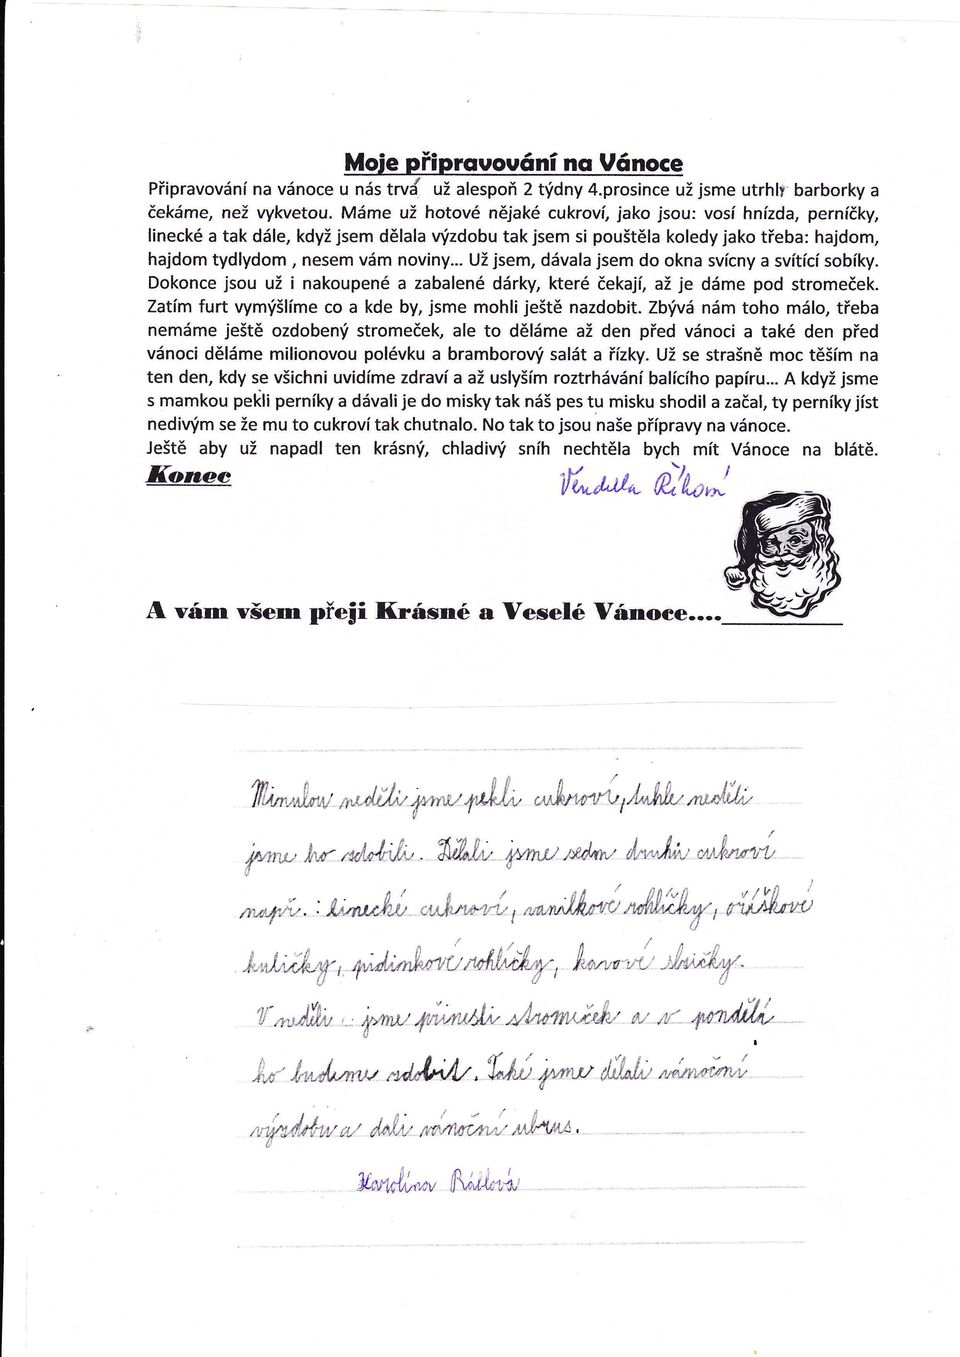 Moje připravování na Vánoce
Připravování na vánoce u nás trvá už alespoň 2 týdny 4.prosince už jsme utrhly barborky a
čekáme, než vykvetou. Máme už hotové nějaké cukroví, jako jsou: vosí hnízda, perníčky,
linecké a tak dále, když jsem dělala výzdobu tak jsem si pouštěla koledy jako třeba: hajdom,
hajdom tydlydom , nesem vám noviny... Už jsem, dávala jsem do okna svícny a svítící sobíky.
Dokonce jsou už i nakoupené a zabalené dárky, které čekají, až je dáme pod stromeček.
Zatím furt vymýšlíme co a kde by, jsme mohli ještě nazdobit. Zbývá nám toho málo, třeba
nemáme ještě ozdobený stromeček, ale to děláme až den před vánoci a také den před
vánoci děláme milionovou polévku a bramborový salát a řízky. Už se strašně moc těším na
ten den, kdy se všichni uvidíme zdraví a až uslyším roztrhávání balícího papíru... A když jsme
s mamkou pekli perníky a dávali je do misky tak náš pes tu misku shodil a začal, ty perníky jíst
nedivým se že mu to cukroví tak chutnalo. No tak to jsou naše přípravy na vánoce.
Ještě aby už napadl ten krásný, chladivý sníh nechtěla bych mít Vánoce na blátě.
Konec
Vendula
A vám všem přeji Krásné a Veselé Vánoce....
Minulou neděli jsme pekli cukroví, tuhle neděli
jsme ho zdobili. Dělali jsme sedm druhů cukroví
např. : linecké cukroví, vanilkové rohlíčky, oříškové
kuličky, pidinkové rohlíčky, kávové sbsičky.
V neděli jsme přinesli stromeček a v pondělí
ho budeme zdobit. Také jsme dělali vánoční
výzdobu a dali vánoční ubrus.
Karolína Ráblová